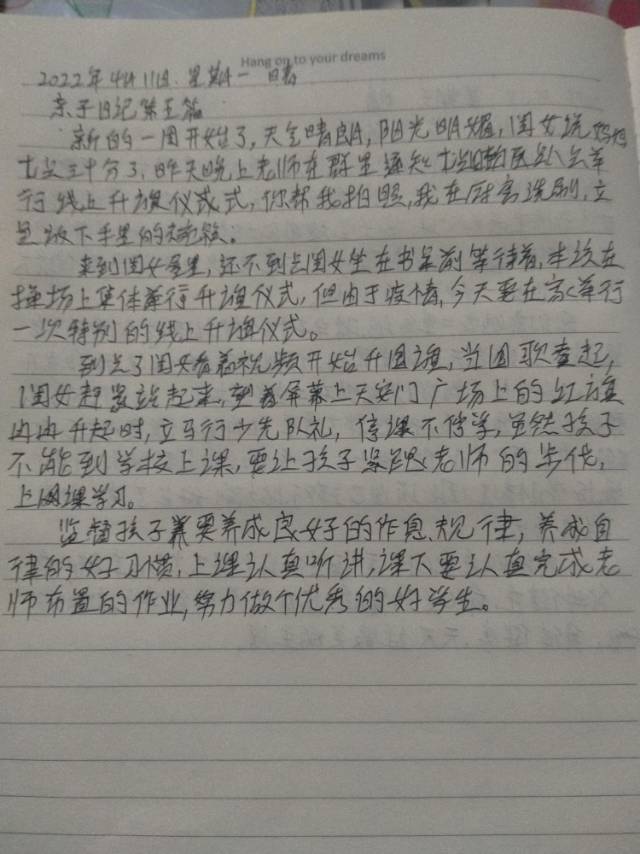 Hang on to your dreams
2022年4月11日. 星期一 晴
亲子日记第五篇
新的一周开始了,天气晴朗,阳光明媚,闺女说妈妈
七点三十分了,昨天晚上老师在群里通知七点四十五分举
行线上升旗仪式,你帮我拍照,我在厨房洗刷,立
马放下手里的碗筷。
来到闺女屋里,还不到点闺女坐在书桌前等待着,本该在
操场上集体举行升旗仪式,但由于疫情,今天要在家举行
一次特别的线上升旗仪式。
到点了闺女看着视频开始升国旗,当国歌奏起,
闺女赶紧站起来,望着屏幕上天安门广场上的红旗
冉冉升起时,立马行少先队礼,停课不停学,虽然孩子
不能到学校上课,要让孩子紧跟老师的步伐,
上网课学习。
监督孩子要养成良好的作息规律,养成自
律的好习惯,上课认真听讲,课下要认真完成老
师布置的作业,努力做个优秀的好学生。